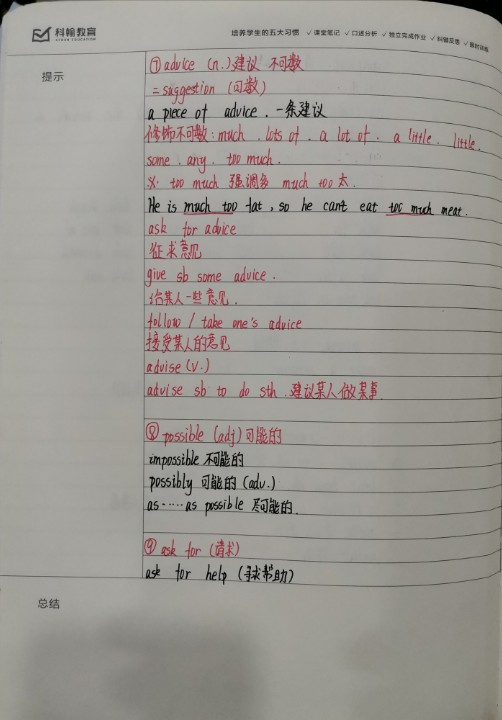 科翰教育
培养学生的五大习惯 ✓课堂笔记 ✓口述分析 ✓独立完成作业 ✓纠错反思 ✓限时训练
提示
⑦ advice (n.) 建议 不可数
= suggestion (可数)
a piece of advice. 一条建议
修饰不可数: much . lots of . a lot of . a little . little.
some . any . too much .
※ too much 强调多 much too 太.
He is much too fat , so he can't eat too much meat.
ask for advice
征求意见
give sb some advice .
给某人一些意见.
follow / take one's advice
接受某人的意见
advise (v.)
advise sb to do sth . 建议某人做某事
⑧ possible (adj) 可能的
impossible 不可能的
possibly 可能的 (adv.)
as ······ as possible 尽可能的.
⑨ ask for (请求)
ask for help (寻求帮助)
总结